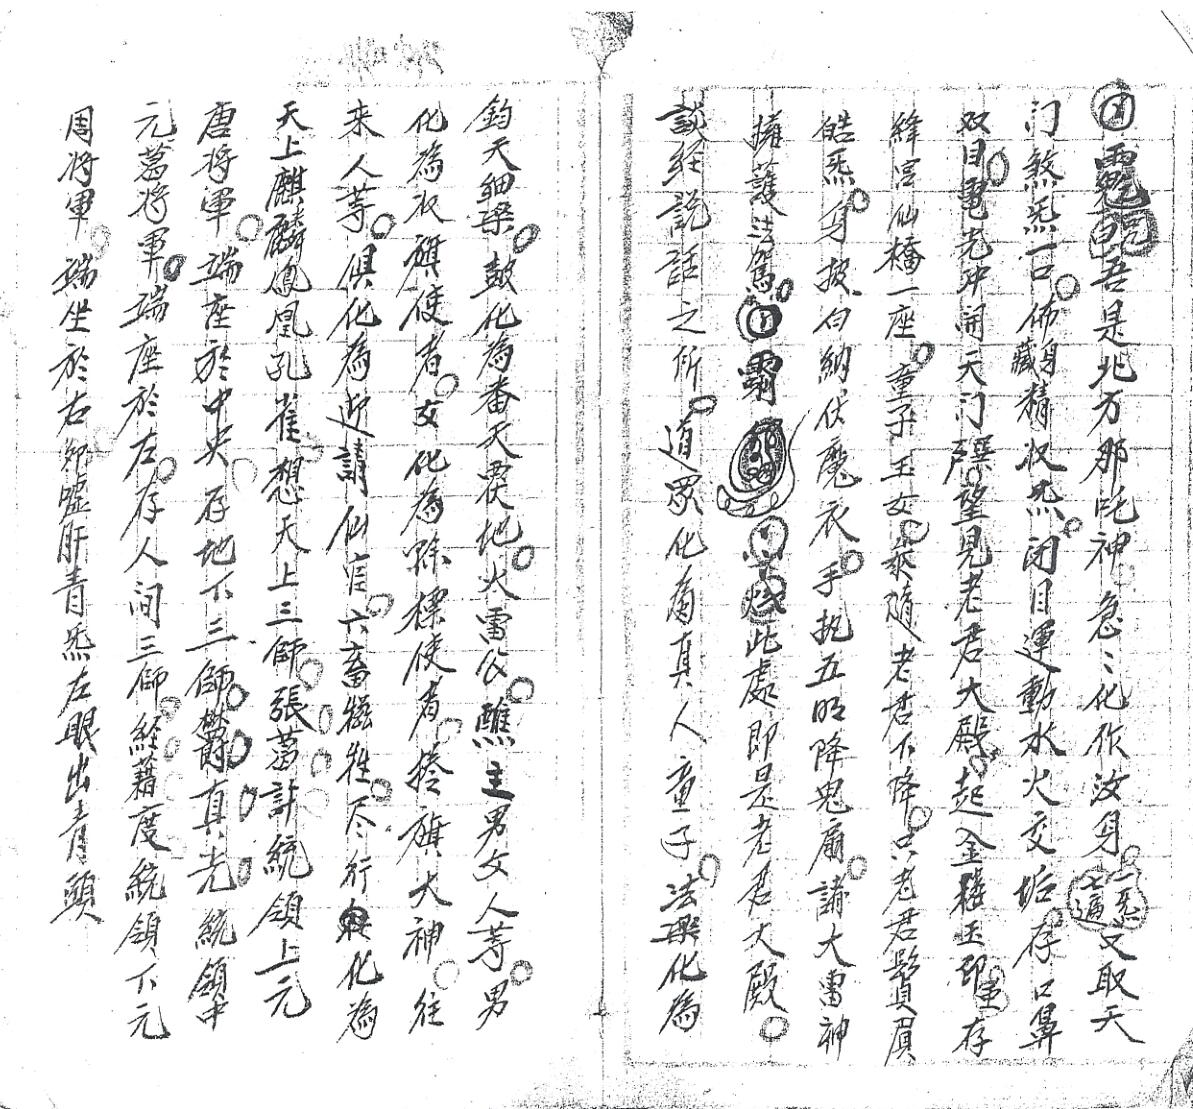 吾是北方那吒神急〻化作汝身一炁七遍又取天
门煞炁一口佈身藏精收炁闭目運動水火交垢存口鼻
双目電光冲開天门望見老君大殿起金樓玉存
絳宫仙橋一座童子玉女乘隨老君下降只老君鬚眉
皓炁身披白納伏魔衣手执五明降鬼扇諸大雷神
擁護法駕此處即是老君大殿
談経說話之所道眾化為真人童子法噐化為
鈞天樂鼓化為番天覆地火雷公醮主男女人等男
化為收旗使者女化為縣標使者捲旗大神往
来人等俱化為迎請仙官六畜犠牲尽行化為
天上麒麟鳳凰孔雀想天上三師張葛許統領上元
唐将軍端座於中央存地下三師真光統領中
元葛将軍端座於左存人间三師経藉度統領下元
周将軍端坐於右卯嘘肝青炁左眼出青頭